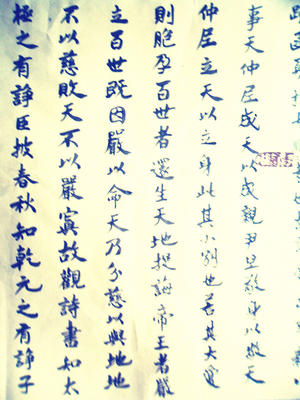 事天仲尼成天以成親尹旦敬身以敬天
仲尼立天以立身此其小別也若其大
則胞孕百世者還生天地提誨帝王者嚴
立百世既因嚴以命天乃分慈以與地地
不以慈敗天不以嚴寡故觀詩書知太
極之有諍臣披春秋知乾元之有諍子